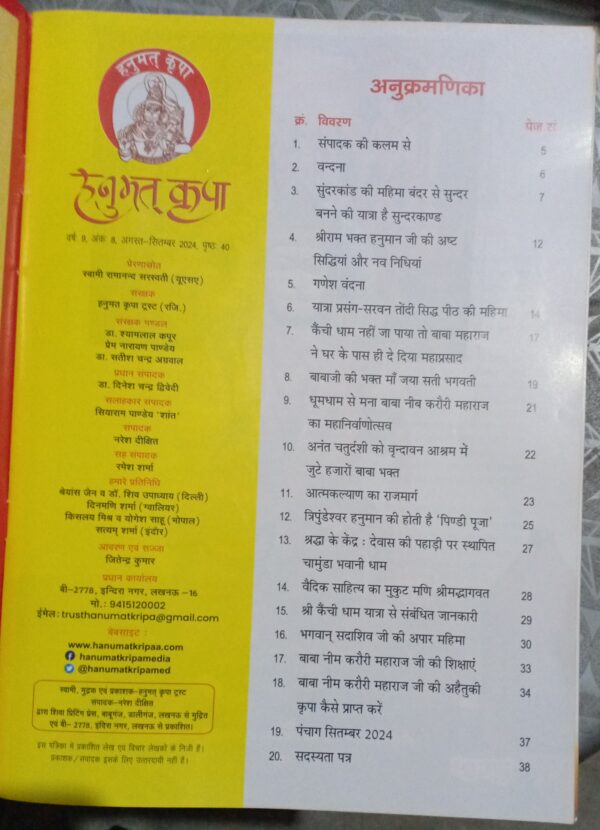 हनुमत् कृपा
हनुमत् कृपा
वर्ष 9, अंक 8, अगस्त-सितम्बर 2024, पृष्ठ: 40
प्रेरणास्रोत
स्वामी रामानन्द सरस्वती (यूएसए)
संरक्षक
हनुमत कृपा ट्रस्ट (रजि.)
संरक्षक मण्डल
डा. श्यामलाल कपूर
प्रेम नारायण पाण्डेय
डा. सतीश चन्द्र अग्रवाल
प्रधान संपादक
डा. दिनेश चन्द्र द्विवेदी
सलाहकार संपादक
सियाराम पाण्डेय 'शांत'
संपादक
नरेश दीक्षित
सह संपादक
रमेश शर्मा
हमारे प्रतिनिधि
श्रेयांस जैन व डॉ. शिव उपाध्याय (दिल्ली)
दिनमणि शर्मा (ग्वालियर)
किसलय मिश्र व योगेश साहू (भोपाल)
सत्यम् शर्मा (इंदौर)
आवरण एवं सज्जा
जितेन्द्र कुमार
प्रधान कार्यालय
बी-2778, इन्दिरा नगर, लखनऊ -16
मो.: 9415120002
ईमेल: trusthanumatkripa@gmail.com
वेबसाइट :
www.hanumatkripaa.com
hanumatkripamedia
@hanumatkripamed
स्वामी, मुद्रक एवं प्रकाशक-हनुमत कृपा ट्रस्ट
संपादक-नरेश दीक्षित
द्वारा शिवा प्रिंटिंग प्रेस, बाबूगंज, डालीगंज, लखनऊ से मुद्रित
एवं बी- 2778, इंदिरा नगर, लखनऊ से प्रकाशित।
इस पत्रिका में प्रकाशित लेख एवं विचार लेखकों के निजी हैं।
प्रकाशक/संपादक इसके लिए उत्तरदायी नहीं है।
अनुक्रमणिका
क्रं. विवरण पेज सं.
1. संपादक की कलम से 5
2. वन्दना 6
3. सुंदरकांड की महिमा बंदर से सुन्दर 7
बनने की यात्रा है सुन्दरकाण्ड
4. श्रीराम भक्त हनुमान जी की अष्ट 12
सिद्धियां और नव निधियां
5. गणेश वंदना
6. यात्रा प्रसंग-सरवन तोंदी सिद्ध पीठ की महिमा 14
7. कैंची धाम नहीं जा पाया तो बाबा महाराज 17
ने घर के पास ही दे दिया महाप्रसाद
8. बाबाजी की भक्त माँ जया सती भगवती 19
9. धूमधाम से मना बाबा नीब करौरी महाराज 21
का महानिर्वाणोत्सव
10. अनंत चतुर्दशी को वृन्दावन आश्रम में 22
जुटे हजारों बाबा भक्त
11. आत्मकल्याण का राजमार्ग 23
12. त्रिपुंडेश्वर हनुमान की होती है 'पिण्डी पूजा' 25
13. श्रद्धा के केंद्र : देवास की पहाड़ी पर स्थापित 27
चामुंडा भवानी धाम
14. वैदिक साहित्य का मुकुट मणि श्रीमद्भागवत 28
15. श्री कैंची धाम यात्रा से संबंधित जानकारी 29
16. भगवान् सदाशिव जी की अपार महिमा 30
17. बाबा नीम करौरी महाराज जी की शिक्षाएं 33
18. बाबा नीम करौरी महाराज जी की अहैतुकी 34
कृपा कैसे प्राप्त करें
19. पंचाग सितम्बर 2024 37
20. सदस्यता पत्र 38